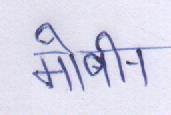 मोबीन